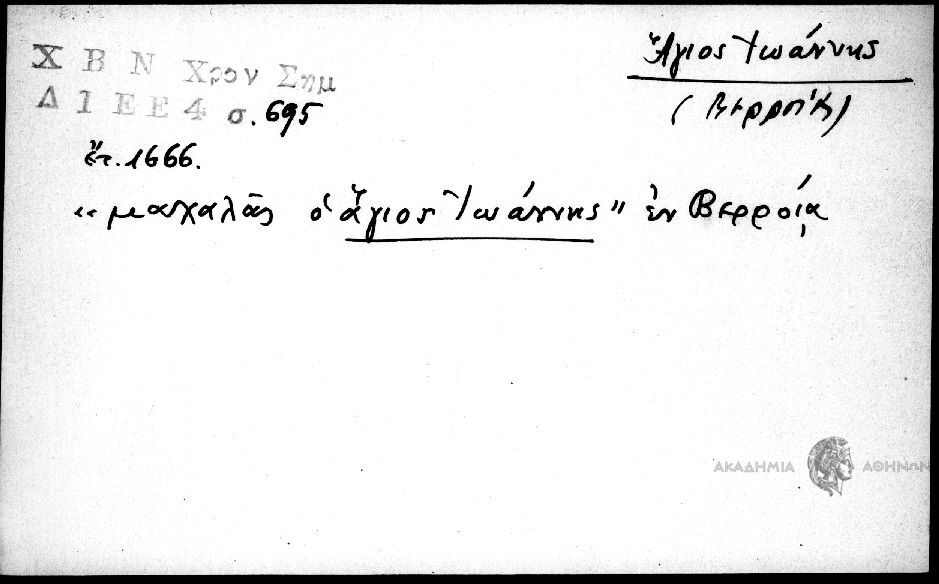 Ἅγιος Ἰωάννης
(Βερροίης)
Χ Β Ν Χρον Σημ
Δ 1 Ε Ε 4 σ. 695
ἔτ. 1666.
"μαχαλᾶς ὁ ἅγιος Ἰωάννης" ἐν Βερροίᾳ
ΑΚΑΔΗΜΙΑ ΑΘΗΝΩΝ